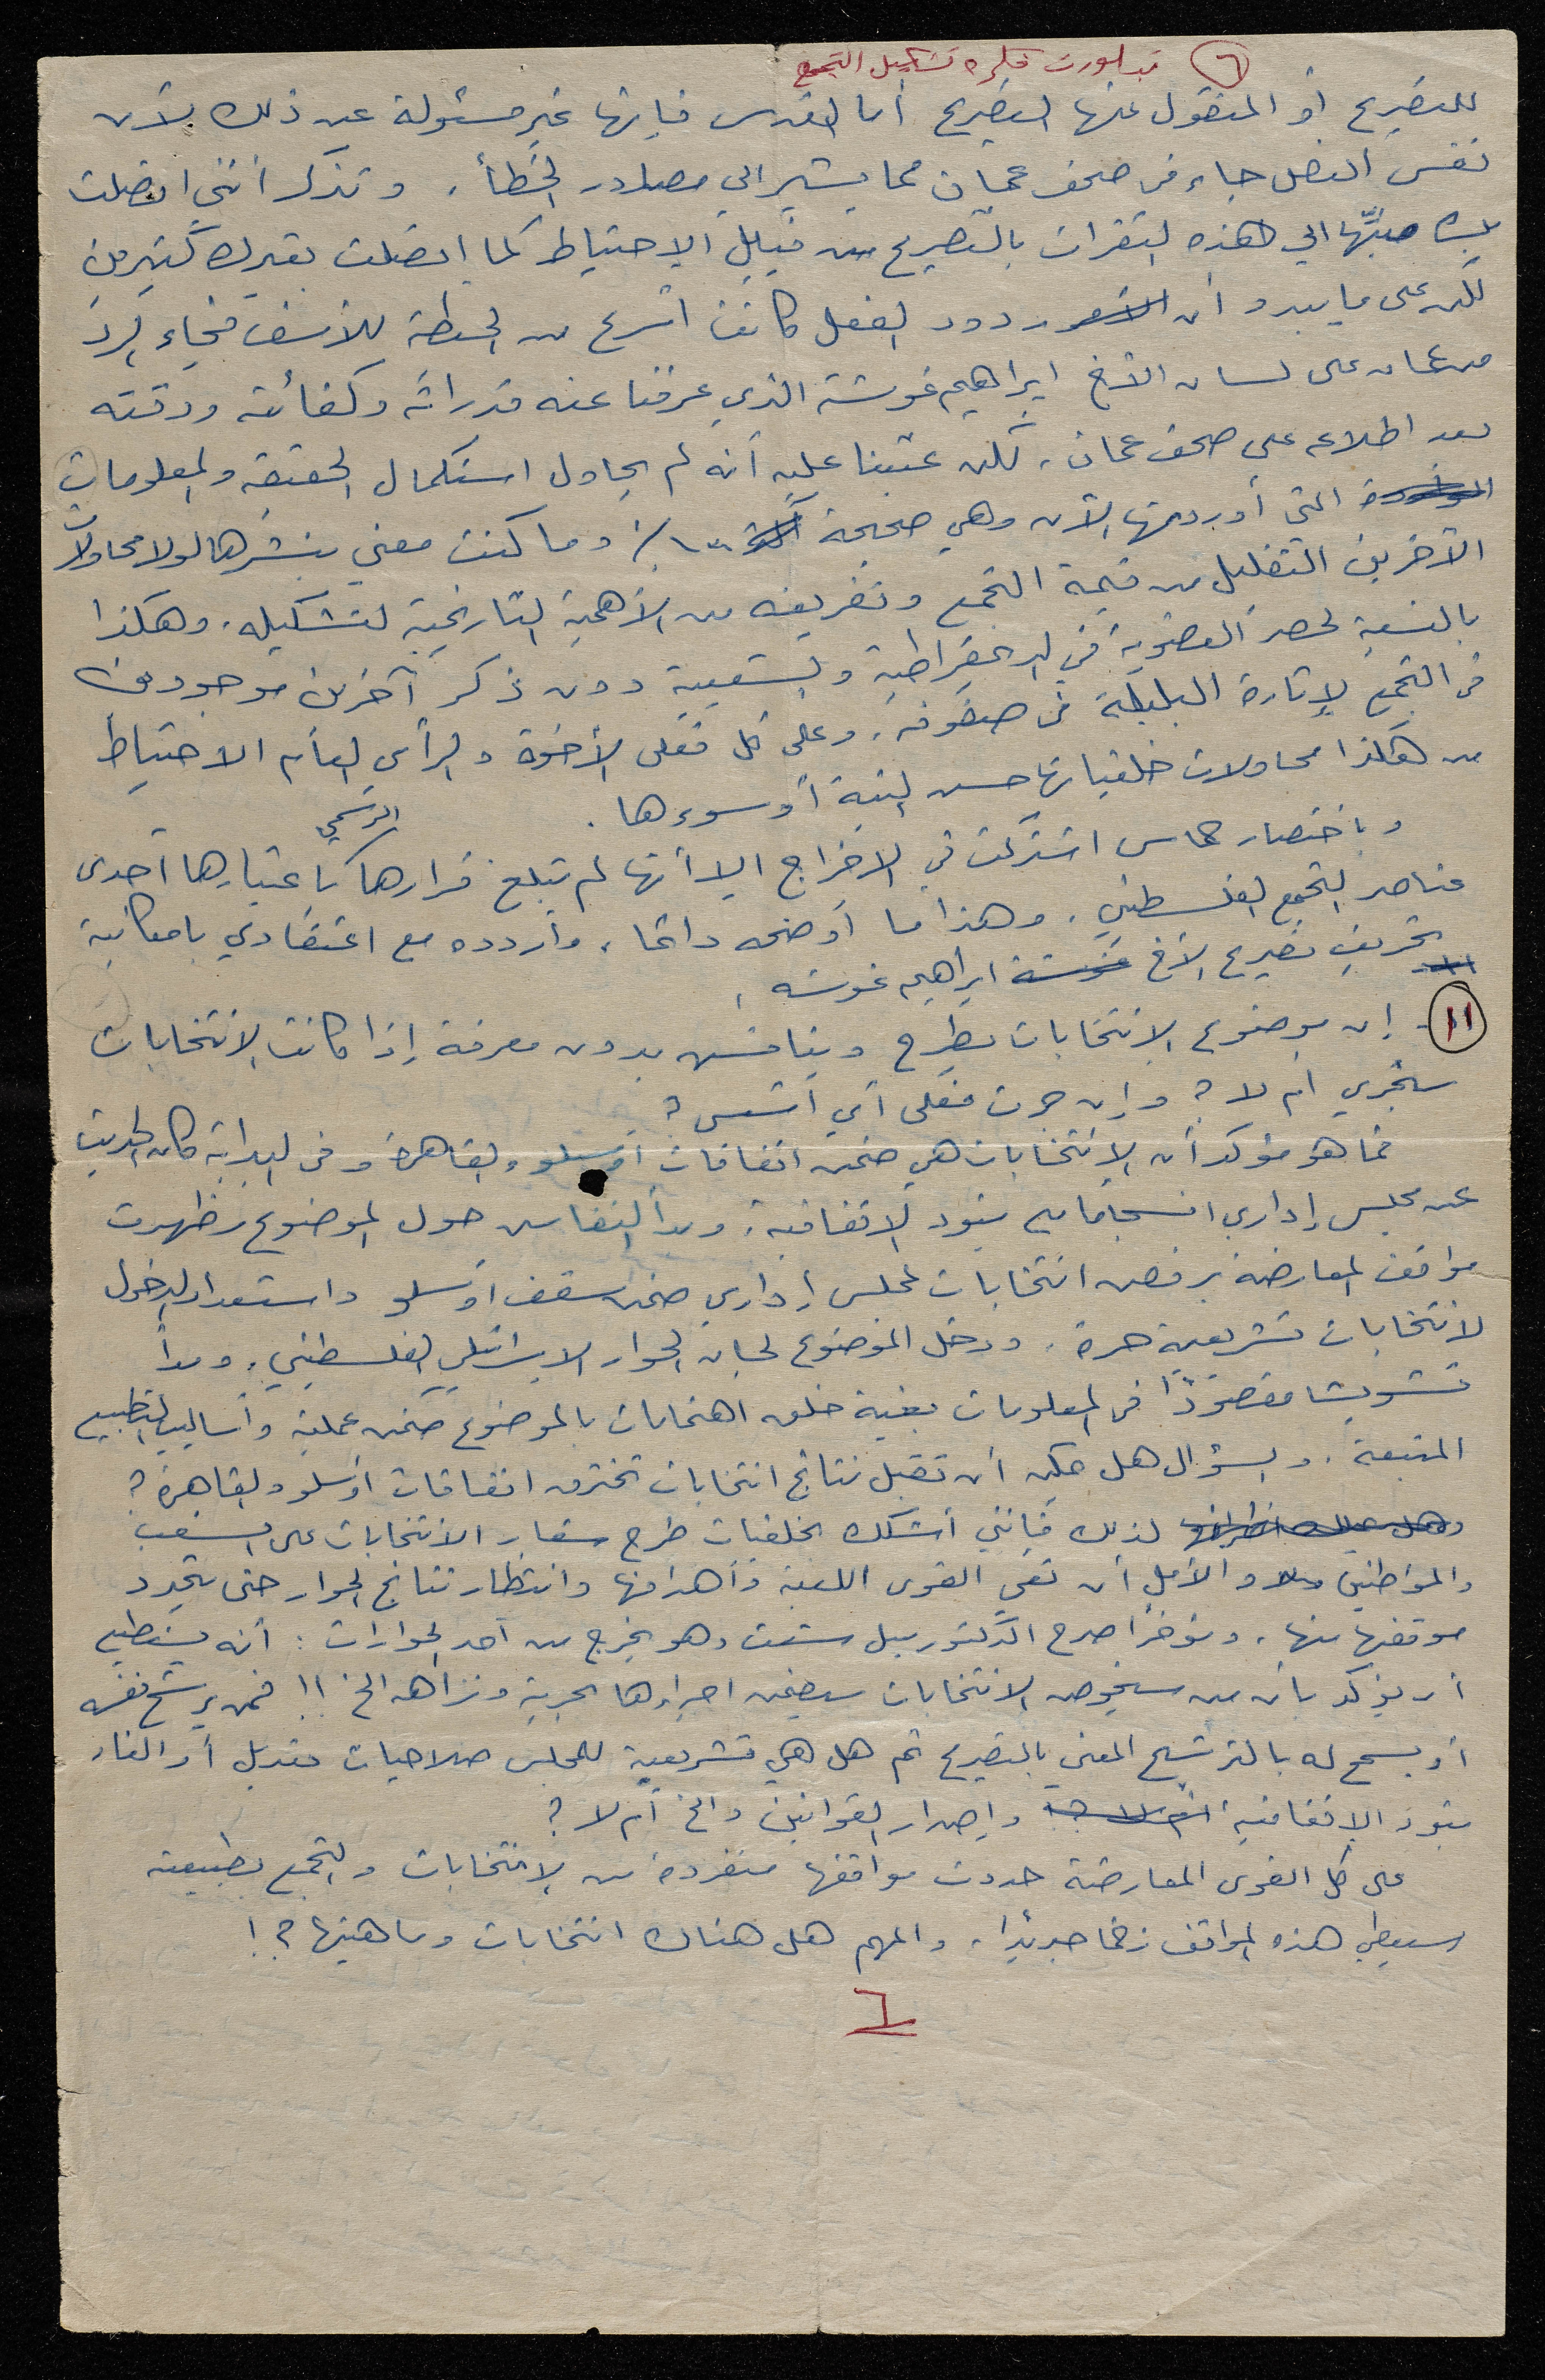 ٦ تبلورت فكرة تشكيل التجمع
للتصريح أو المنقول عنها التصريح أما القدس فإنها غير مسئولة عن ذلك لأن
نفس النص جاء في صحف عمان مما يشير إلى مصادر الخطأ. وتذكر أنني اتصلت
بك منبِّهًا إلى هذه الفقرات بالتصريح من قبيل الاحتياط كما اتصلت بغيرك كثيرين
لكن على ما يبدو أن ردود الفعل كانت أسرع من الحيطة للأسف فجاء الرد
من عمان على لسان الأخ ابراهيم غوشة الذي عرفنا عنه قدراته وكفائته ودقته
بعد اطلاعه على صحف عمان، لكن عتبنا عليه أنه لم يحاول استكمال الحقيقة والمعلومات
التي أوردتها الآن وهي صحيحة ١٠٠٪ وما كنت معني بنشرها لولا محاولات
الآخرين التقليل من قيمة التجمع وتفريغه من الأهمية التاريخية لتشكيله. وهكذا
بالنسبة لحصر العضوية في الديمقراطية والشعبية دون ذكر آخرين موجودين
في التجمع لإثارة البلبلة في صفوفه. وعلى كل فعلى الأخوة والرأي العام الاحتياط
من هكذا محاولات خلفياتها حسن النية أو سوءها.
وباختصار حماس اشتركت في الاخراج إلا أنها لم تبلغ قرارها الرسمي باعتبارها احدى
عناصر التجمع الفلسطيني. وهذا ما أوضحه دائما، وأردده مع اعتقادي بامكانية
تحريف تصريح الأخ ابراهيم غوشه.
١١. إن موضوع الانتخابات يطرح ويناقش بدون معرفة إذا كانت الانتخابات
ستجري أم لا؟ وإن جرت فعلى أي أسس؟
فما هو مؤكد أن الانتخابات هي ضمن اتفاقات أوسلو والقاهرة وفي البداية كان الحديث
عن مجلس إداري انسجاما مع بنود الاتفاقية. وبدأ النقاش حول الموضوع وظهرت
مواقف المعارضة برفض انتخابات لمجلس إداري ضمن سقف أوسلو واستعداد لدخول
لانتخابات تشريعية حرة. ودخل الموضوع لجان الحوار الاسرائيلي الفلسطيني. وبدأ
تشويشا مقصودًا في المعلومات بغية خلق اهتمامات بالموضوع ضمن عملية وأساليب التطبيع
المتبعة. والسؤال هل يمكن أن تقبل نتائج انتخابات تخترق اتفاقات أوسلو والقاهرة؟
لذلك فإنني أشكك بخلفيات طرح شعار الانتخابات على الشعب
والمواطنين والأمل أن تعي القوى اللعبة وأهدافها وانتظار نتائج الحوار حتى تحدد
موقفها منها. ومؤخرًا صرح الدكتور نبيل شعث وهو يخرج من أحد الحوارات: أنه يستطيع
أن يؤكد بأن من سيخوض الانتخابات سيضمن اجراءها بحرية ونزاهه الخ!! فمن يرشح نفسه
أو يسمح له بالترشيح المعني بالتصريح ثم هل هي تشريعية للمجلس صلاحيات تعديل أو الغاء
بنود الاتفاقية وإصدار القوانين والخ أم لا؟
على كل القوى المعارضة حددت مواقفها منفردة من الانتخابات والتجمع بطبيعته
سيعطي هذه المواقف زخما جديدًا. والمهم هل هناك انتخابات وماهيتها؟!
٦